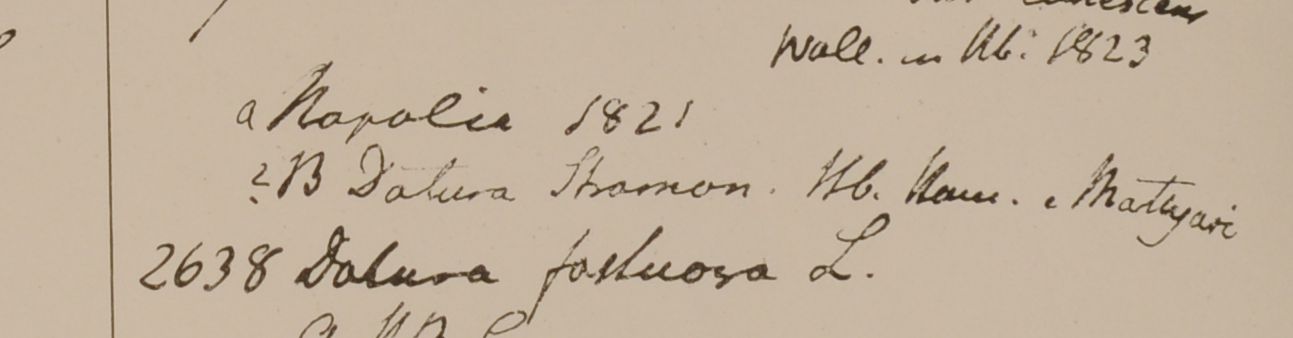 Wall. in Hb. 1823
a Napalia 1821
? B Datura Stramon. Hb. Ham. e Mattyari
2638 Datura fastuosa L.